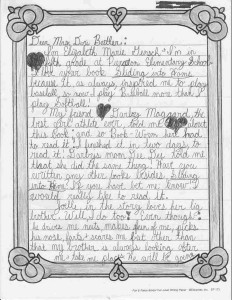 Dear Mrs. Dori Butler,
I'm Elizabeth Marie Gensch I'm in
grade at Elementary School.
I love your book Sliding into Home
because it as always inspired me to play
baseball so now I play Baseball more then I
play Softball!
My friend Darbey Maggard, the
best girl athlete ever, told me about
this book and so Book-Worm here had
to read it! I finished it in two days to
read it. Darbeys mom told me
that she did the same thing. Have you
written any other books besides Sliding
into Home? If you have let me know I
would really like to read it.
Joelle in the story loves her big
brother. Well I do too! Even though
he drives me nuts makes fun of me, picks
his nose, farts, scares me but other than
that my brother is always looking after
me & take me places